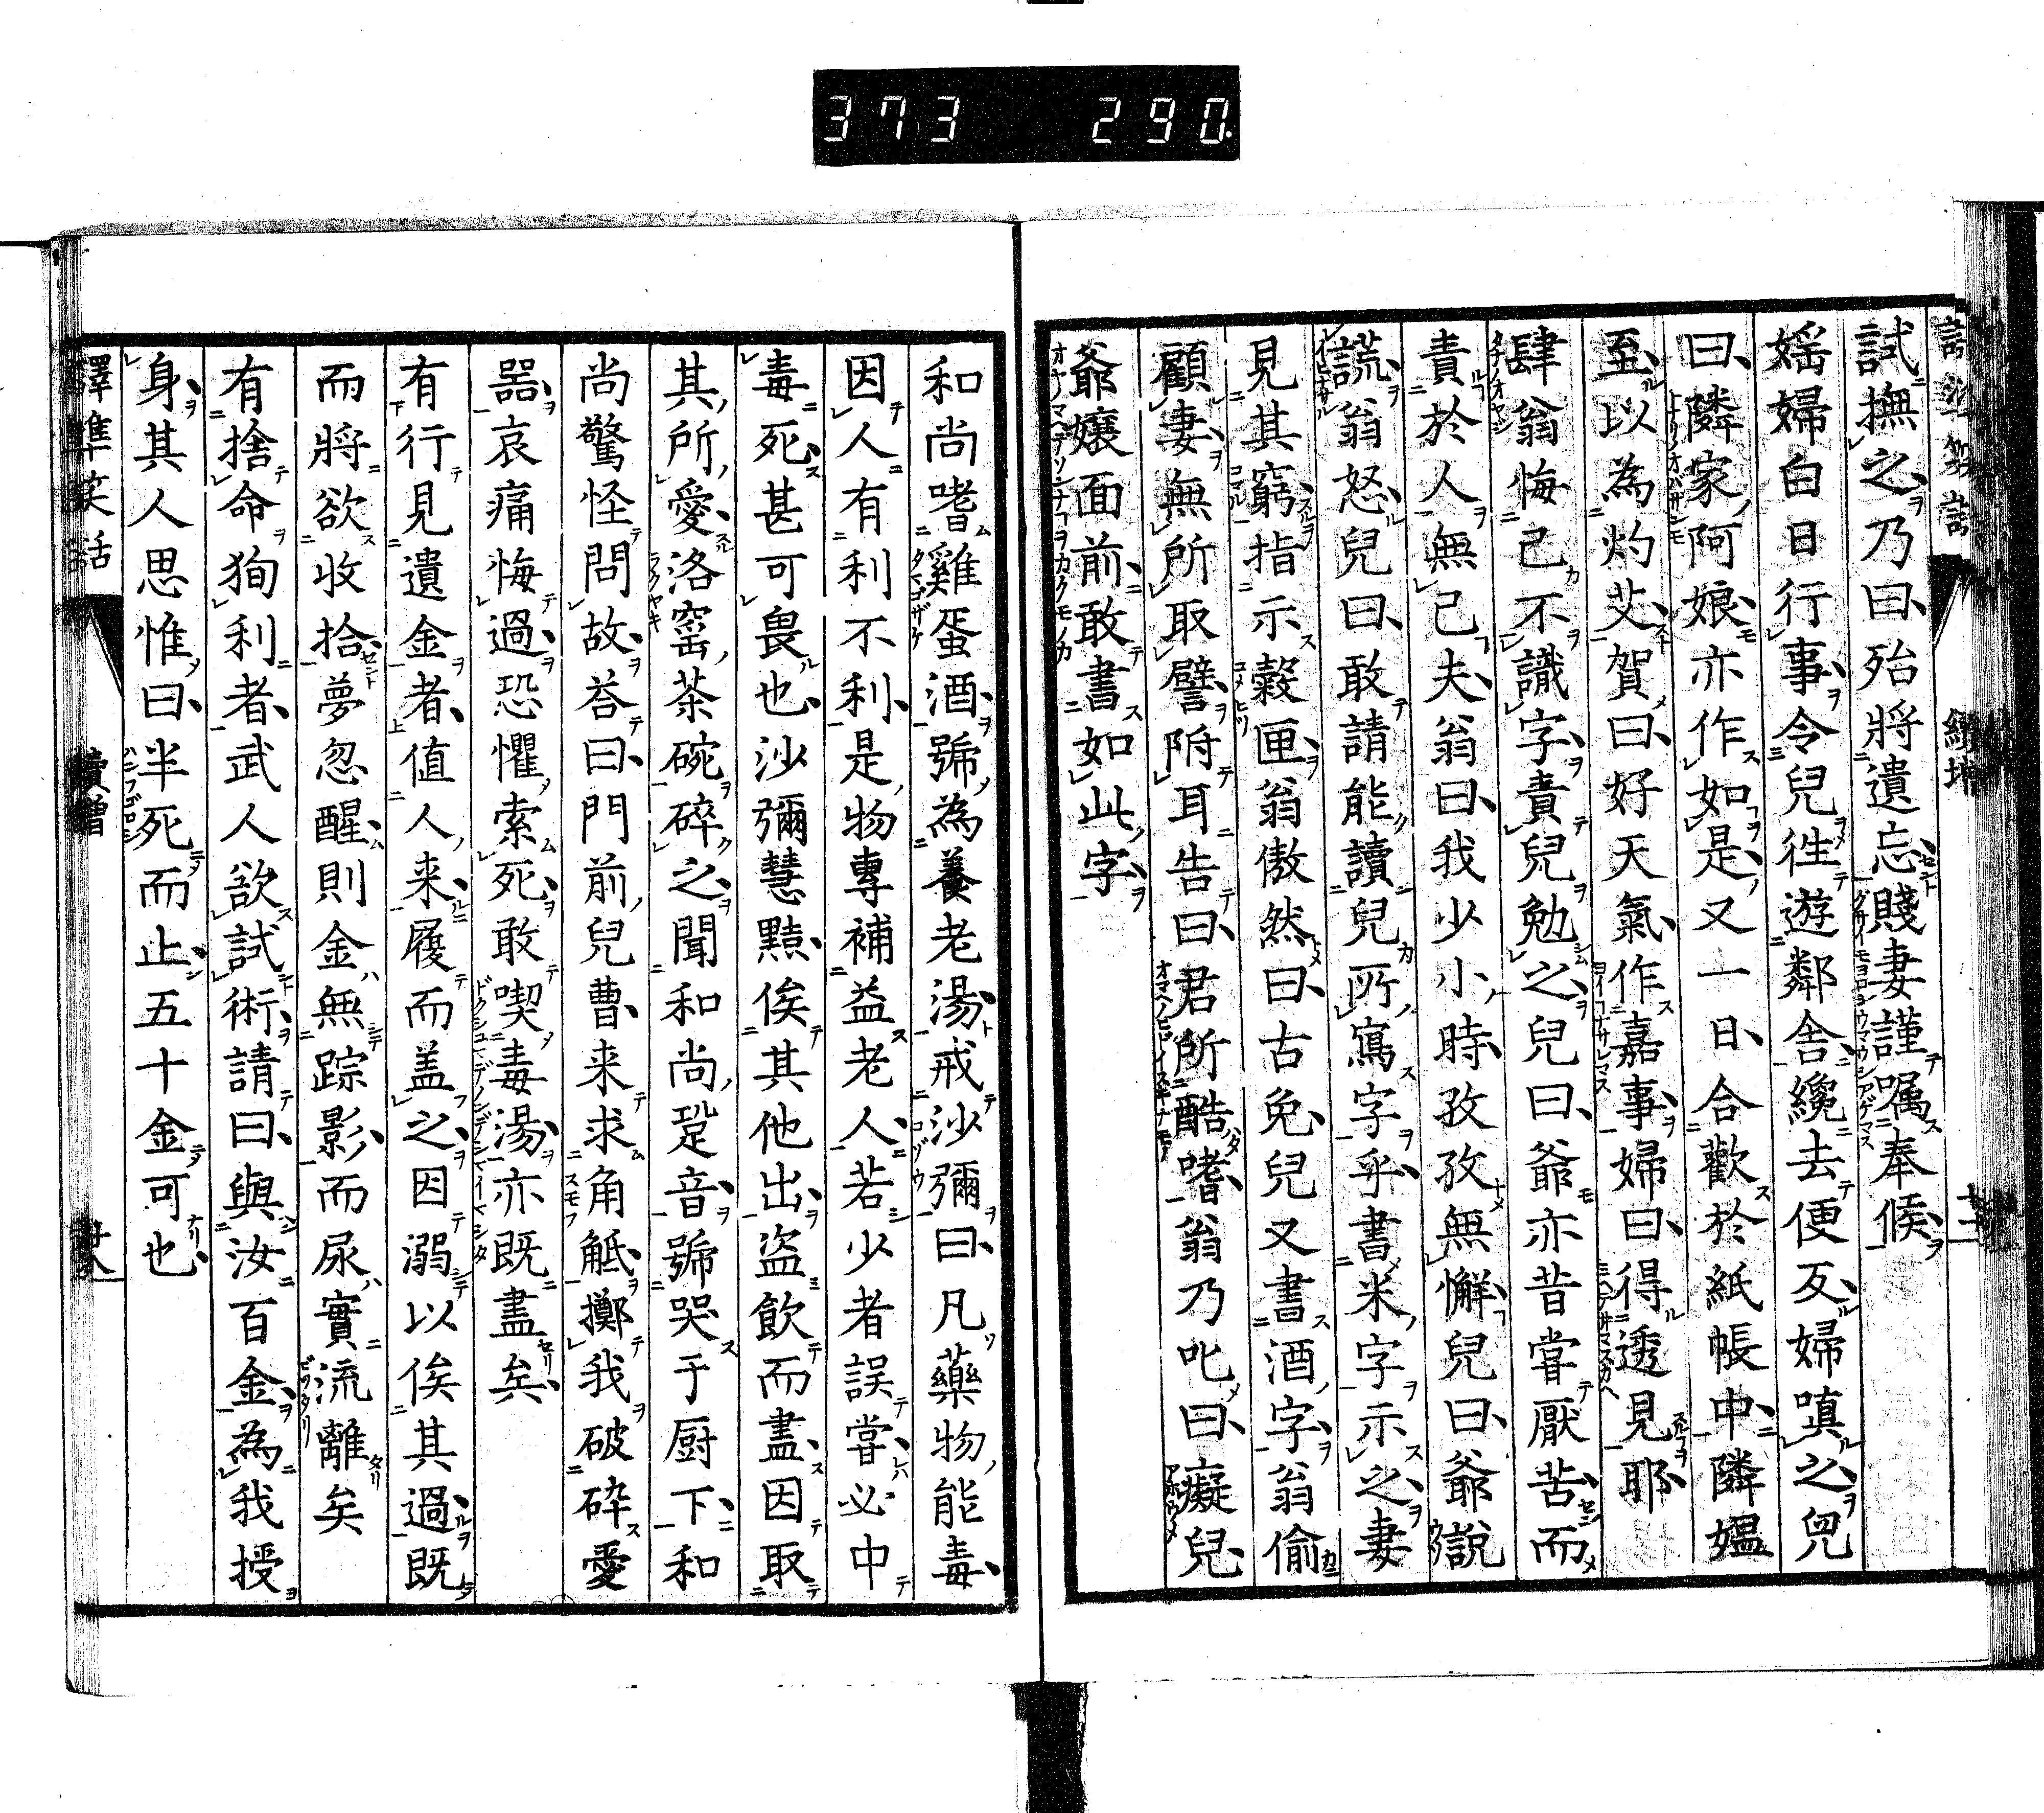 373 290
試撫之乃曰殆將遺忘賤妻謹囑奉候
婬婦白日行事令兒徃遊鄰舎纔去便反婦嗔之兒
曰隣家阿娘亦作如是又一日合歡於紙帳中隣媼
至以為灼艾賀曰好天氣作嘉事婦曰得透見耶
肆翁悔己不識字責兒勉之兒曰爺亦昔甞厭苦而
責於人無已夫翁曰我少小時孜孜無懈兒曰爺説
謊翁怒兒曰敢請能讀兒所寫字乎書米字示之妻
見其窮指示穀匣翁傲然曰古免兒又書酒字翁偷
顧妻無所取譬附耳告曰君所酷嗜翁乃叱曰癡兒
爺孃面前敢書如此字
和尚嗜雞蛋酒號為養老湯戒沙彌曰凡藥物能毒
因人有利不利是物專補益老人若少者誤甞必中
毒死甚可畏也沙彌慧黠俟其他出盜飲而盡因取
其所愛洛窑茶碗碎之聞和尚跫音號哭于厨下和
尚驚怪問故荅曰門前兒曹来求角觝擲我破砕愛
噐哀痛悔過恐懼索死敢喫毒湯亦既盡矣
有行見遺金者值人来履而盖之因溺以俟其過既
而將欲收拾夢忽醒則金無踪影而尿實流離矣
有捨命狥利者武人欲試術請曰與汝百金為我授
身其人思惟曰半死而止五十金可也
譯準笑話